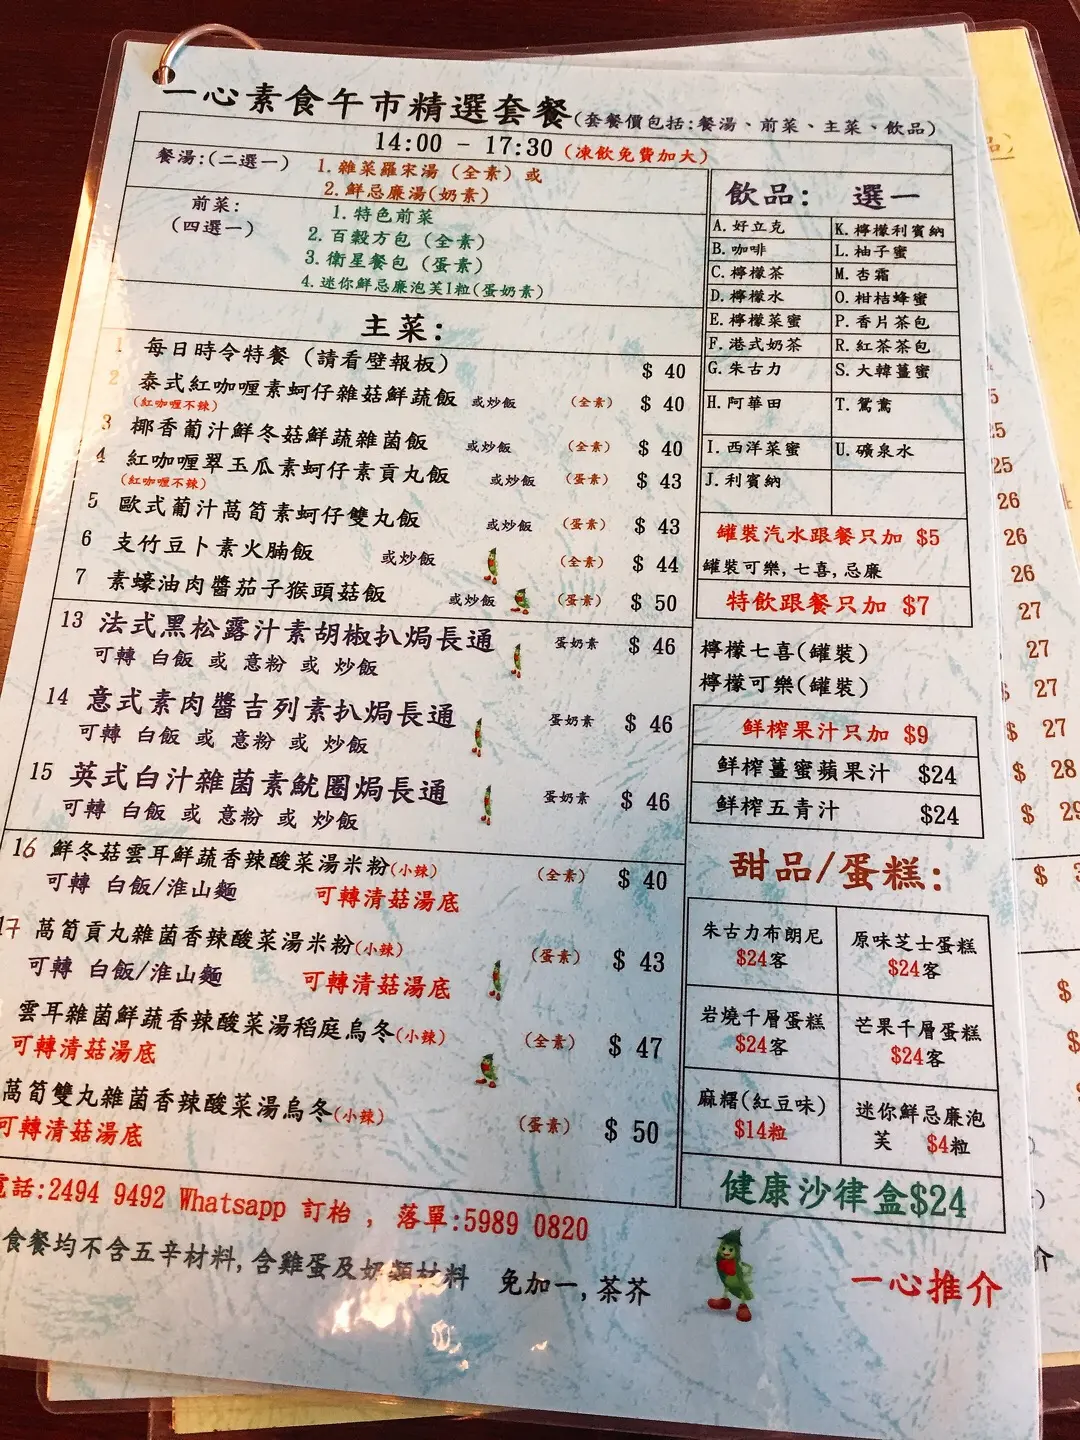 一心素食午市精選套餐(套餐價包括:餐湯、前菜、主菜、飲品)
14:00 - 17:30 (凍飲免費加大)
餐湯:(二選一)
1. 雜菜羅宋湯 (全素) 或
2. 鮮忌廉湯(奶素)
前菜:
(四選一)
1. 特色前菜
2. 百穀方包 (全素)
3. 衛星餐包 (蛋素)
4. 迷你鮮忌廉泡芙1粒(蛋奶素)
主菜:
1 每日時令特餐 (請看壁報板) $ 40
2 泰式紅咖喱素蚵仔雜菇鮮蔬飯 或炒飯 (全素) $ 40
(紅咖喱不辣)
3 椰香葡汁鮮冬菇鮮蔬雜菌飯 或炒飯 (全素) $ 40
4 紅咖喱翠玉瓜素蚵仔素貢丸飯 或炒飯 (蛋素) $ 43
(紅咖喱不辣)
5 歐式葡汁萵筍素蚵仔雙丸飯 或炒飯 (蛋素) $ 43
6 支竹豆卜素火腩飯 或炒飯 (全素) $ 44
7 素蠔油肉醬茄子猴頭菇飯 或炒飯 (蛋素) $ 50
13 法式黑松露汁素胡椒扒焗長通 蛋奶素 $ 46
可轉 白飯 或 意粉 或 炒飯
14 意式素肉醬吉列素扒焗長通 蛋奶素 $ 46
可轉 白飯 或 意粉 或 炒飯
15 英式白汁雜菌素魷圈焗長通 蛋奶素 $ 46
可轉 白飯 或 意粉 或 炒飯
16 鮮冬菇雲耳鮮蔬香辣酸菜湯米粉(小辣) (全素) $ 40
可轉 白飯/淮山麵 可轉清菇湯底
17 萵筍貢丸雜菌香辣酸菜湯米粉(小辣) (蛋素) $ 43
可轉 白飯/淮山麵 可轉清菇湯底
雲耳雜菌鮮蔬香辣酸菜湯稻庭烏冬(小辣) (全素) $ 47
可轉清菇湯底
萵筍雙丸雜菌香辣酸菜湯烏冬(小辣) (蛋素) $ 50
可轉清菇湯底
電話:2494 9492 Whatsapp 訂枱 , 落單:5989 0820
食餐均不含五辛材料,含雞蛋及奶類材料 免加一,茶芥
飲品: 選一
A. 好立克 K. 檸檬利賓納
B. 咖啡 L. 柚子蜜
C. 檸檬茶 M. 杏霜
D. 檸檬水 O. 柑桔蜂蜜
E. 檸檬菜蜜 P. 香片茶包
F. 港式奶茶 R. 紅茶茶包
G. 朱古力 S. 大韓薑蜜
H. 阿華田 T. 鴛鴦
I. 西洋菜蜜 U. 礦泉水
J. 利賓納
罐裝汽水跟餐只加 $5
罐裝可樂,七喜,忌廉
特飲跟餐只加 $7
檸檬七喜(罐裝)
檸檬可樂(罐裝)
鮮榨果汁只加 $9
鮮榨薑蜜蘋果汁 $24
鮮榨五青汁 $24
甜品/蛋糕:
朱古力布朗尼 $24客
原味芝士蛋糕 $24客
岩燒千層蛋糕 $24客
芒果千層蛋糕 $24客
麻糬(紅豆味) $14粒
迷你鮮忌廉泡芙 $4粒
健康沙律盒$24
一心推介
品)
25
25
26
26
26
27
27
$ 27
$ 27
$ 28
$ 29
$
$
介